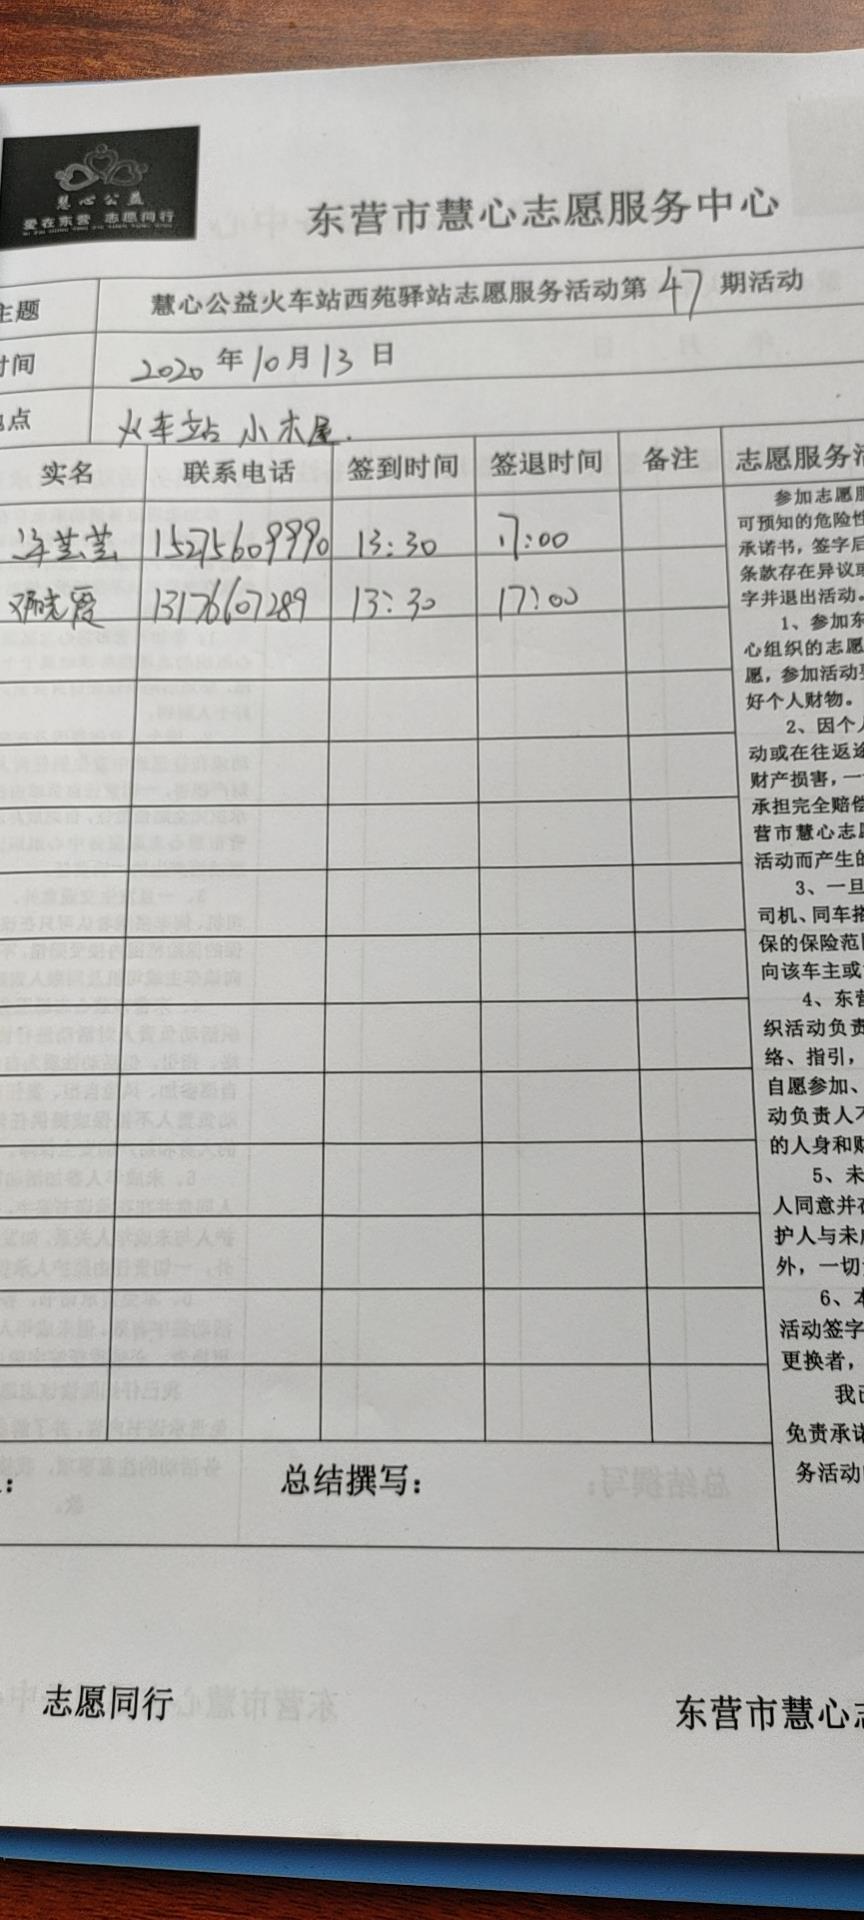 慧心公益
爱在东营 志愿同行
东营市慧心志愿服务中心
主题 慧心公益火车站西苑驿站志愿服务活动第47期活动
时间 2020年10月13日
地点 火车站 小木屋.
实名 联系电话 签到时间 签退时间 备注
15275609990 13:30 17:00
13176607289 13:30 17:00
志愿服务活
参加志愿服
可预知的危险性
承诺书,签字后
条款存在异议或
字并退出活动。
1、参加东
心组织的志愿
愿,参加活动要
好个人财物。
2、因个人
动或在往返途
财产损害,一
承担完全赔偿
营市慧心志愿
活动而产生的
3、一旦
司机、同车搭
保的保险范围
向该车主或
4、东营
织活动负责
络、指引,
自愿参加、
动负责人不
的人身和财
5、未
人同意并在
护人与未成
外,一切
6、本
活动签字
更换者,
我已
免责承诺
务活动
总结撰写:
志愿同行
东营市慧心志